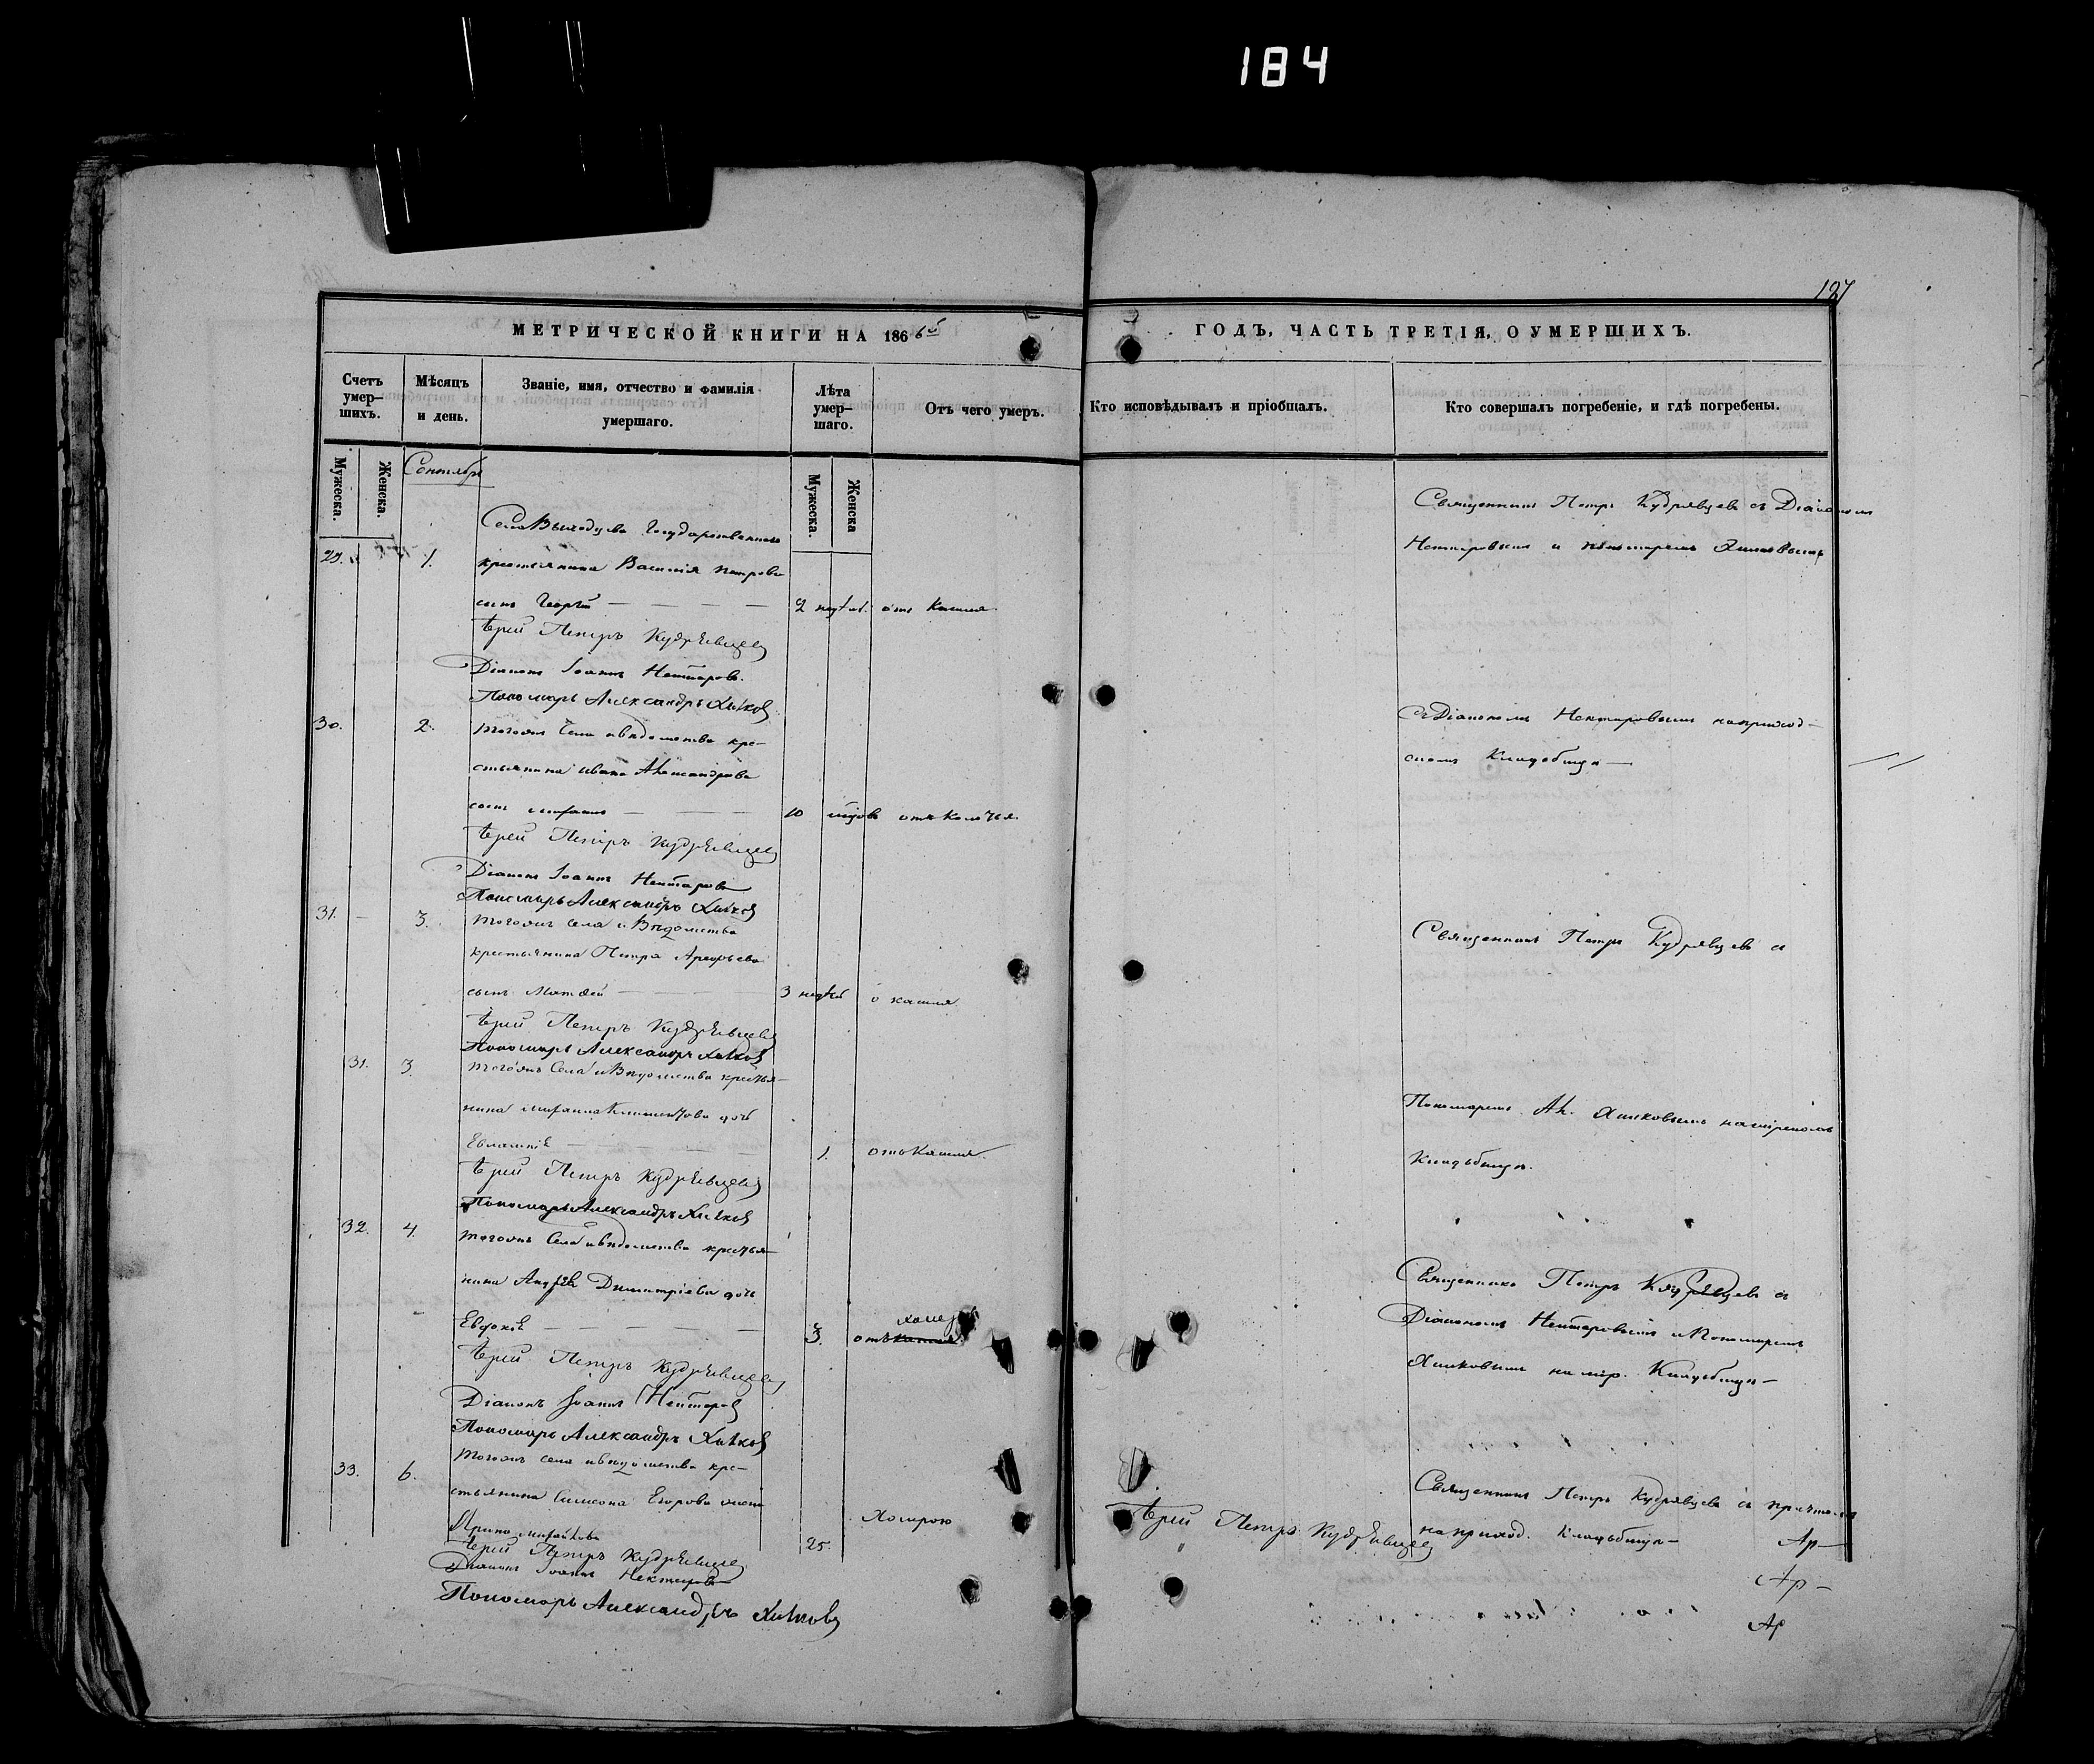 184
187
МЕТРИЧЕСКОЙ КНИГИ НА 1866 й
ГОДЪ, ЧАСТЬ ТРЕТІЯ, О УМЕРШИХЪ.
Счетъ умер-шихъ.
Мѣсяцъ и день.
Званіе, имя, отчество и фамилія умершаго.
Лѣта умер-шаго.
Отъ чего умеръ.
Кто исповѣдывалъ и пріобщалъ.
Кто совершалъ погребеніе, и гдѣ погребены.
Мужеска.
Женска.
Сентябрь
Мужеска.
Женска
Села Государственнаго
29. 1. крестьянина Василія Петрова
сынъ Георгій — — — — 2 недѣл. отъ Кашля
Іерей Петръ Кудрявцевъ
Діаконъ Іоаннъ Нектаровъ.
Пономарь Александръ Хитковъ
Священникъ Петръ Кудрявцевъ съ Діакономъ
Нектаровымъ и пономаремъ
30. 2. тогожъ Села и вѣдомства кре-
стьянина Ивана Александрова
сынъ — — — 10 отъ Колотья.
Іерей Петръ Кудрявцевъ
Діаконъ Іоаннъ Нектаровъ
Пономарь Александръ Хитковъ
съ Діакономъ Нектаровымъ на приход-
скомъ Кладбищѣ —
31. — 3. тогожъ Села и Вѣдомства
крестьянина Петра Арефьева
сынъ Матвей — — — 3 недѣл о кашля
Іерей Петръ Кудрявцевъ
Пономарь Александръ Хитковъ
Священникъ Петръ Кудрявцевъ съ
31. 3. тогожъ Села и Вѣдомства крестья-
нина дочь
— — — 1. отъ Кашля
Іерей Петръ Кудрявцевъ
Пономарь Александръ Хитковъ
Пономаремъ Ал.
Кладбищѣ.
32. 4. тогожъ Села и вѣдомства крестья-
нина Андрея Димитріева дочь
Евдокія — — — — 3. отъ кашля
Іерей Петръ Кудрявцевъ
Діаконъ Іоаннъ Нектаровъ
Пономарь Александръ Хитковъ
Священникъ Петръ Кудрявцевъ съ
Діакономъ Нектаровымъ и Пономаремъ
на пр. Кладбищѣ —
33. 6. тогожъ села и вѣдомства кре-
стьянина Симеона Егорова жена
Ирина 25. Холерою
Іерей Петръ Кудрявцевъ
Діаконъ Іоаннъ Нектаровъ
Пономарь Александръ Хитковъ
Іерей Петръ Кудрявцевъ
Священникъ Петръ Кудрявцевъ съ причтомъ
на приход. Кладбищѣ —
Ар—
Ар—
Ар